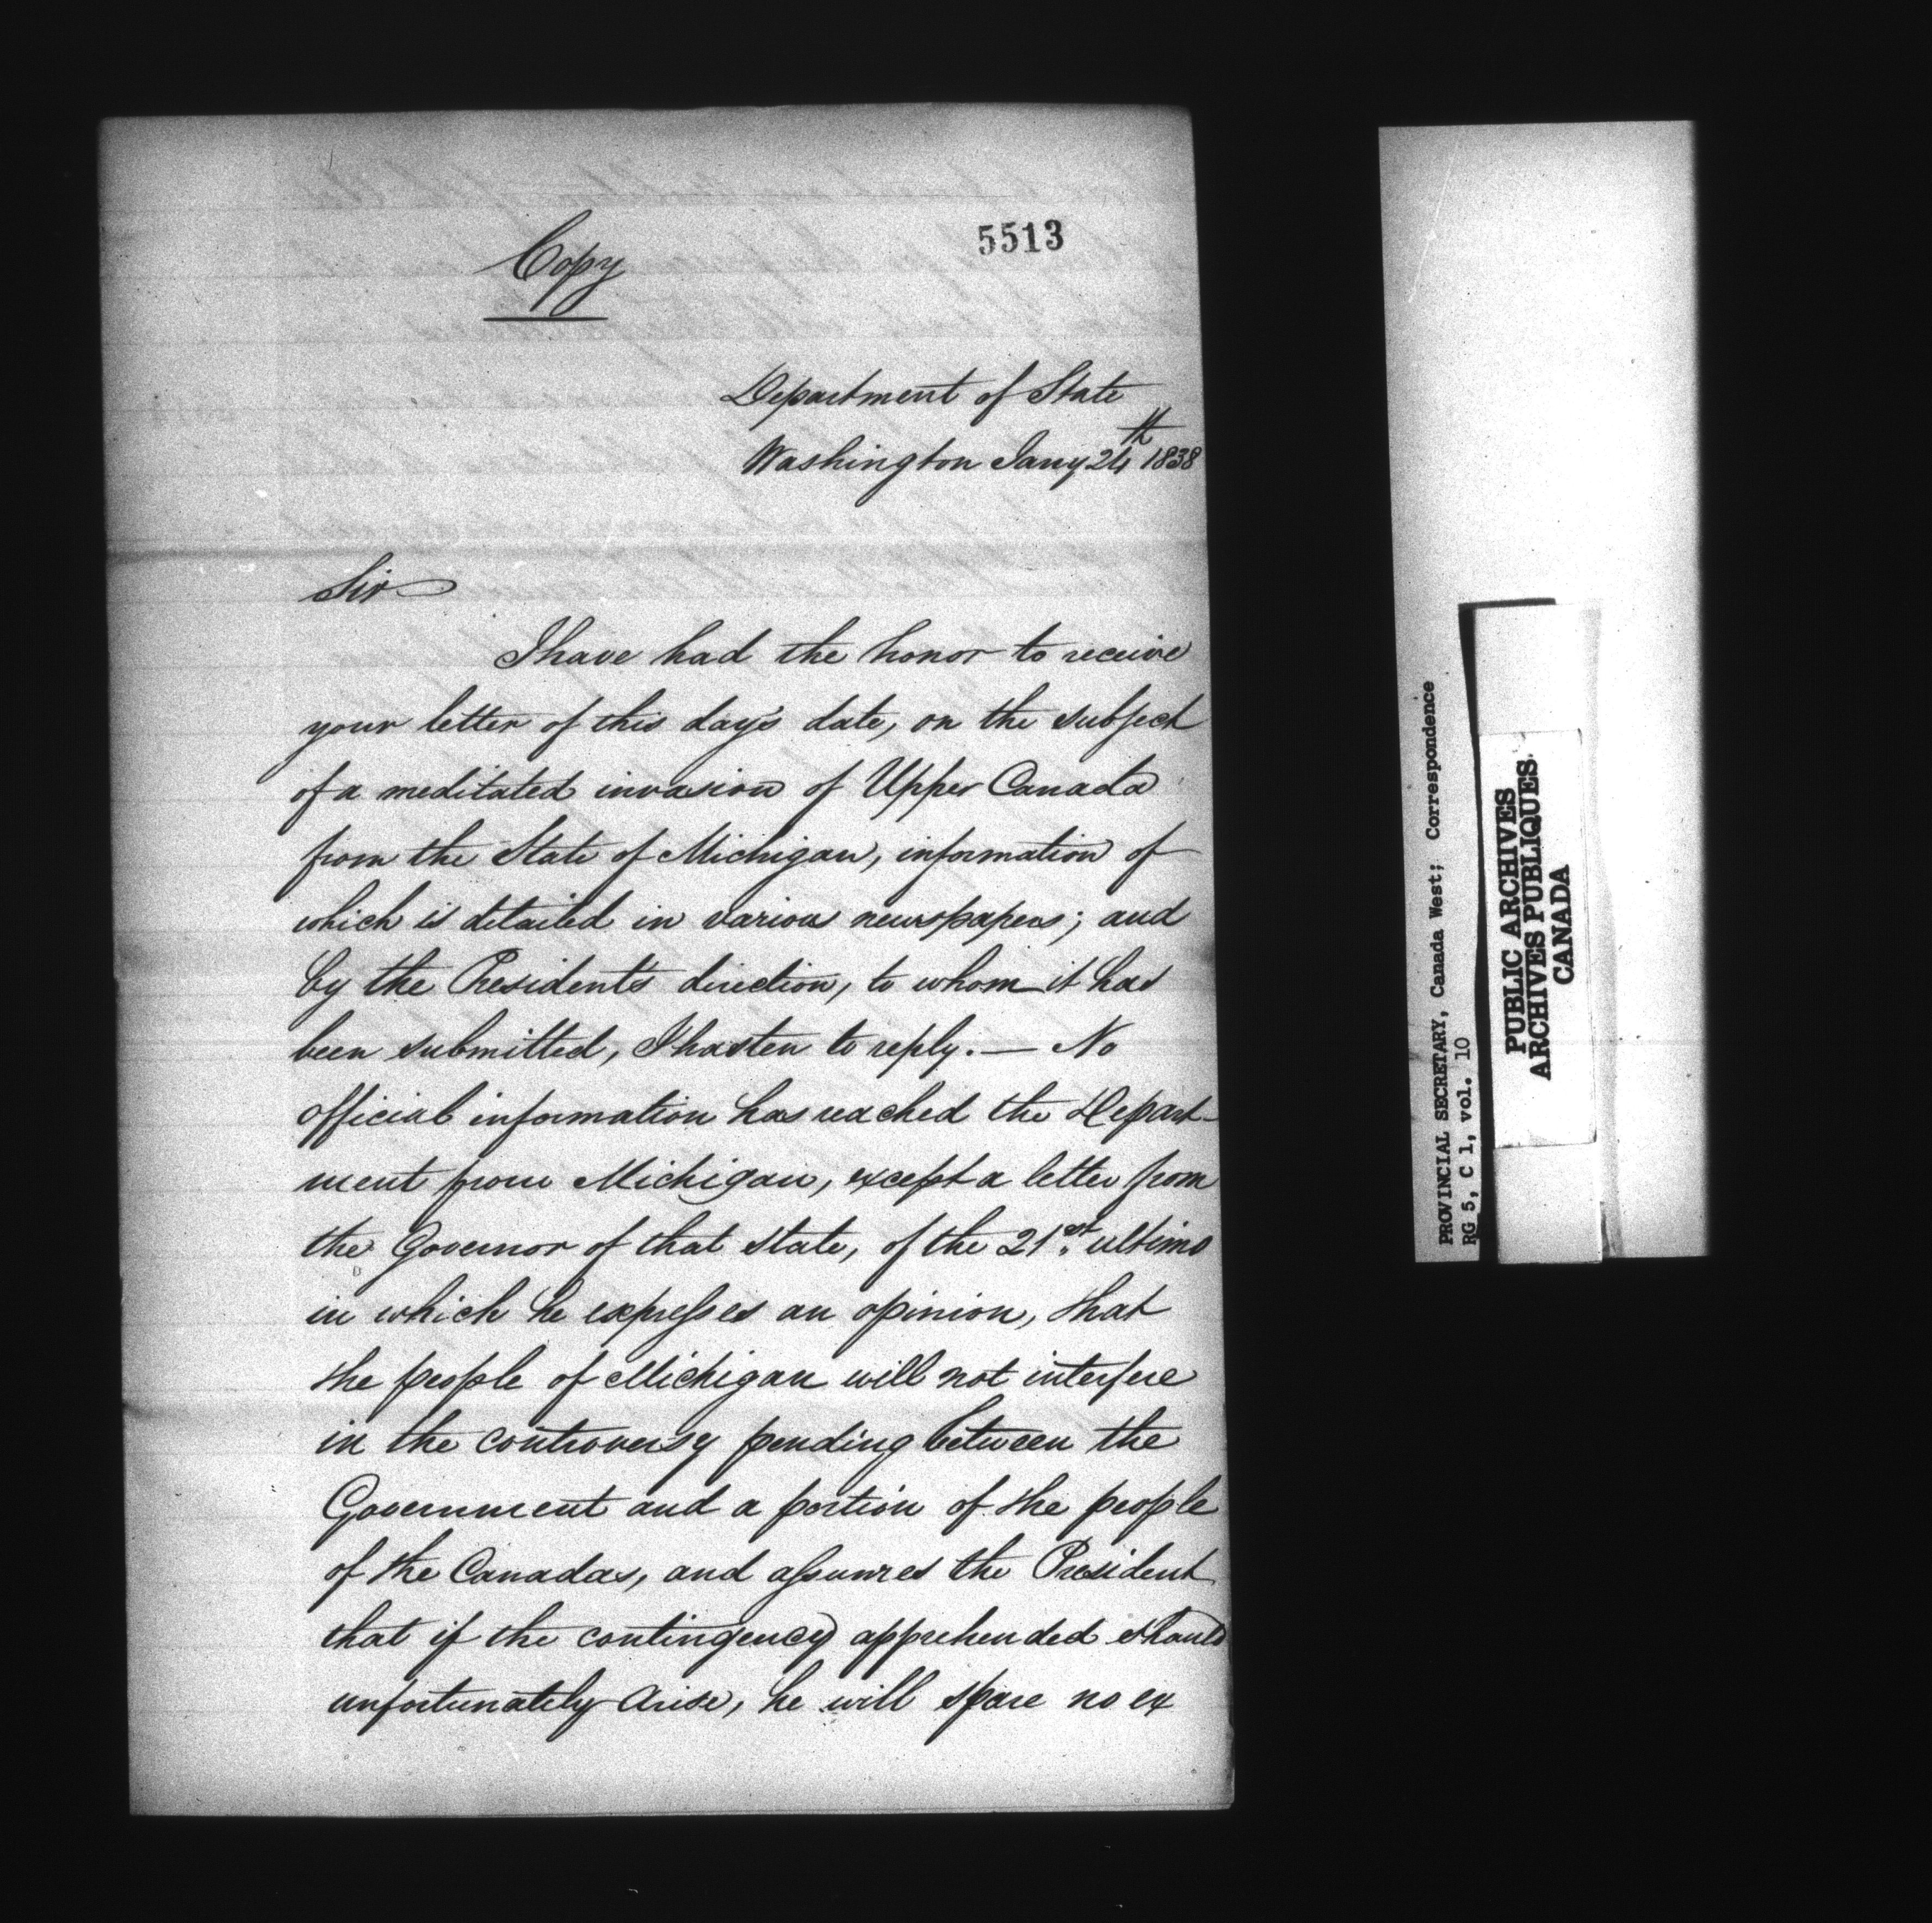 Copy
5513
Department of State
Washington Jany 24th 1838
Sir
I have had the honor to receive
your letter of this day's date, on the subject
of a meditated invasion of Upper Canada
from the State of Michigan, information of
which is detailed in various newspapers; and
by the President's direction, to whom it has
been submitted, I hasten to reply. — No
official information has reached the Depart-
ment from Michigan, except a letter from
the Governor of that state, of the 21st. ultimo
in which he expresses an opinion, that
the people of Michigan will not interfere
in the controversy pending between the
Government and a portion of the people
of the Canadas, and assures the President
that if the contingency apprehended should
unfortunately arise, he will spare no ex
PROVINCIAL SECRETARY, Canada West; Correspondence
RG 5, C 1, vol. 10
PUBLIC ARCHIVES
ARCHIVES PUBLIQUES
CANADA